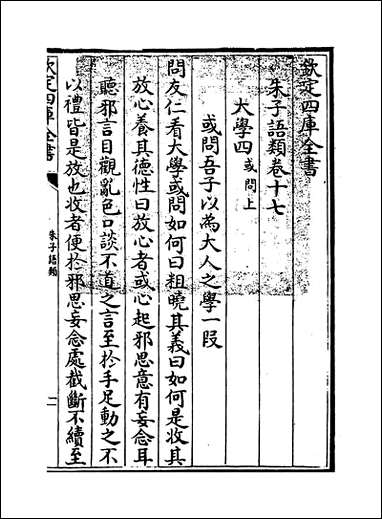 欽定四庫全書
朱子語類卷十七
大學四或問上
或問吾子以為大人之學一段
問友仁看大學或問如何曰粗曉其義曰如何是收其
放心養其德性曰放心者或心起邪思意有妄念耳
聽邪言目觀亂色口談不道之言至於手足動之不
以禮皆是放也收者便於邪思妄念處截斷不續至
欽定四庫全書
朱子語類